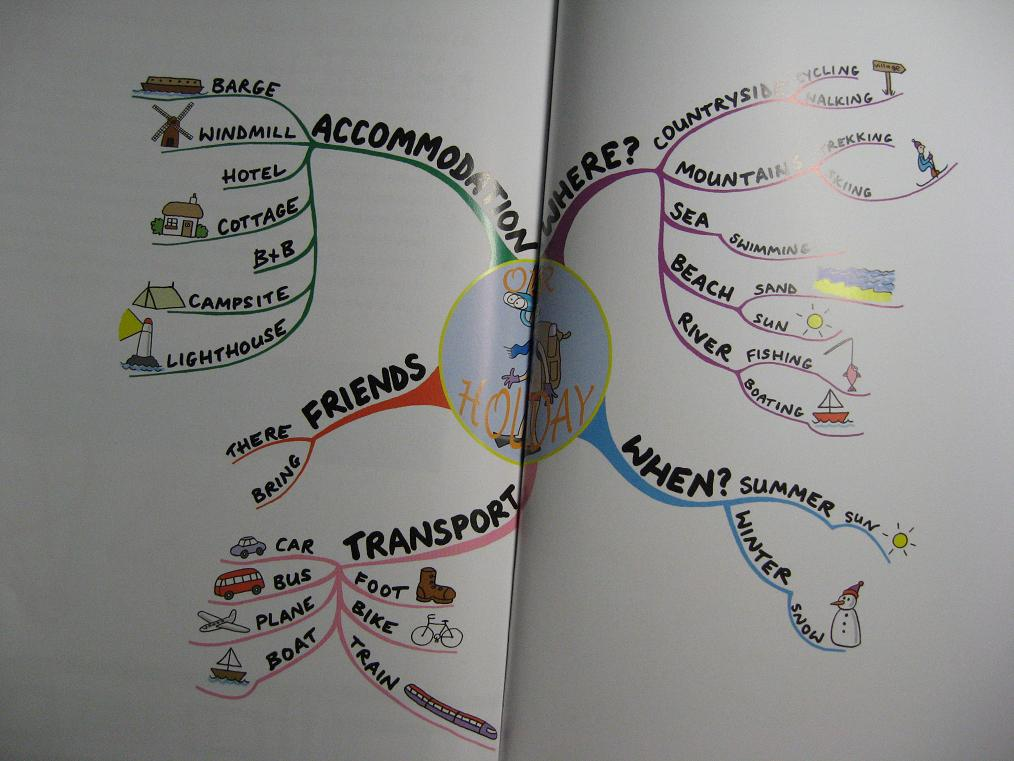 OUR
HOLIDAY
ACCOMMODATION
BARGE
WINDMILL
HOTEL
COTTAGE
B+B
CAMPSITE
LIGHTHOUSE
FRIENDS
THERE
BRING
TRANSPORT
CAR
BUS
PLANE
BOAT
FOOT
BIKE
TRAIN
WHERE?
COUNTRYSIDE
CYCLING
village
WALKING
MOUNTAINS
TREKKING
SKIING
SEA
SWIMMING
BEACH
SAND
SUN
RIVER
FISHING
BOATING
WHEN?
SUMMER
SUN
WINTER
SNOW